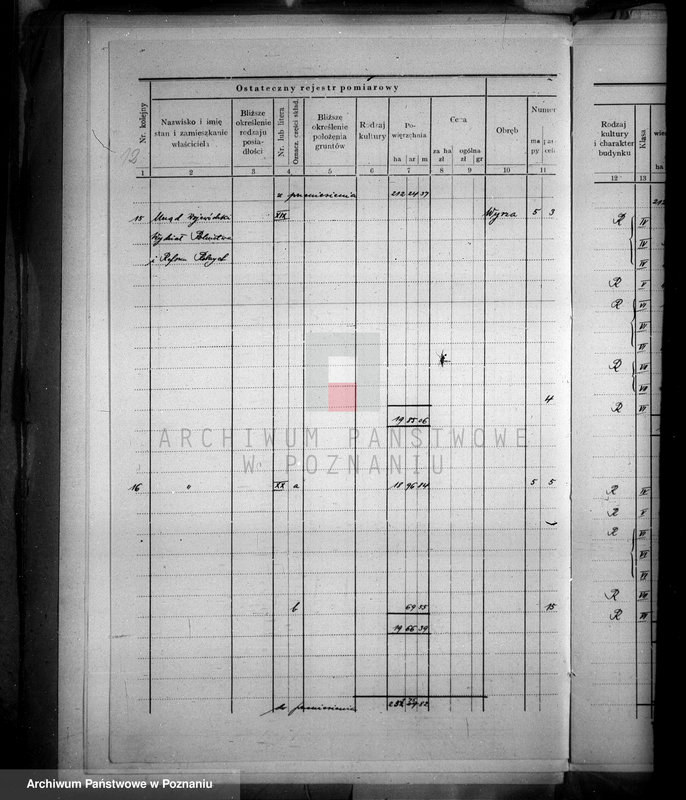 Ostateczny rejestr pomiarowy
Nr. kolejny
Nazwisko i imię
stan i zamieszkanie
właściciela
Bliższe
określenie
rodzaju
posia-
dłości
Nr. lub litera
Oznacz. części skład.
Bliższe
określenie
położenia
gruntów
Rodzaj
kultury
Po-
wierzchnia
ha ar m
Cena
za ha
zł
ogólna
zł gr
Obręb
Numer
ma
py
Rodzaj
kultury
i charakter
budynku
Klasa
ha
1 2 3 4 5 6 7 8 9 10 11 12 13
z przeniesienia 212 24 37
15 Urząd Wojewódzki XIX Wyrza 5 3 R IV
Wydział Rolnictwa IV
i Reform Rolnych IV
R V
R VI
VI
VI
R VII
VII
4
R VI
19 85 06
16 " XX a 18 96 84 5 5 R IV
R V
R VI
VI
VI
R VII
b 69 55 15 R VI
19 66 39
do przeniesienia
ARCHIWUM PAŃSTWOWE
W POZNANIU
Archiwum Państwowe w Poznaniu